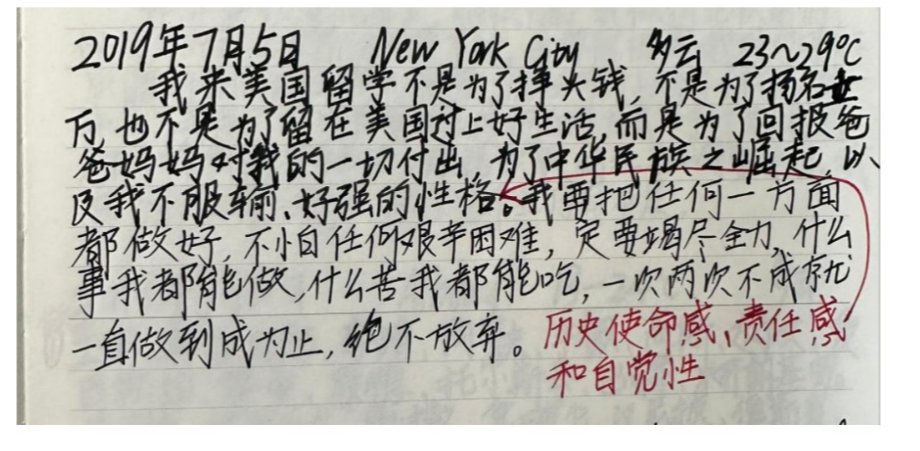 2019年7月5日 New York City 多云 23~29℃
我来美国留学不是为了挣大钱,不是为了扬名
万,也不是为了留在美国过上好生活,而是为了回报爸
爸妈妈对我的一切付出,为了中华民族之崛起,以
及我不服输、好强的性格。我要把任何一方面
都做好,不怕任何艰辛困难,定要竭尽全力,什么
事我都能做,什么苦我都能吃,一次两次不成就
一直做到成为止,绝不放弃。
历史使命感、责任感
和自觉性